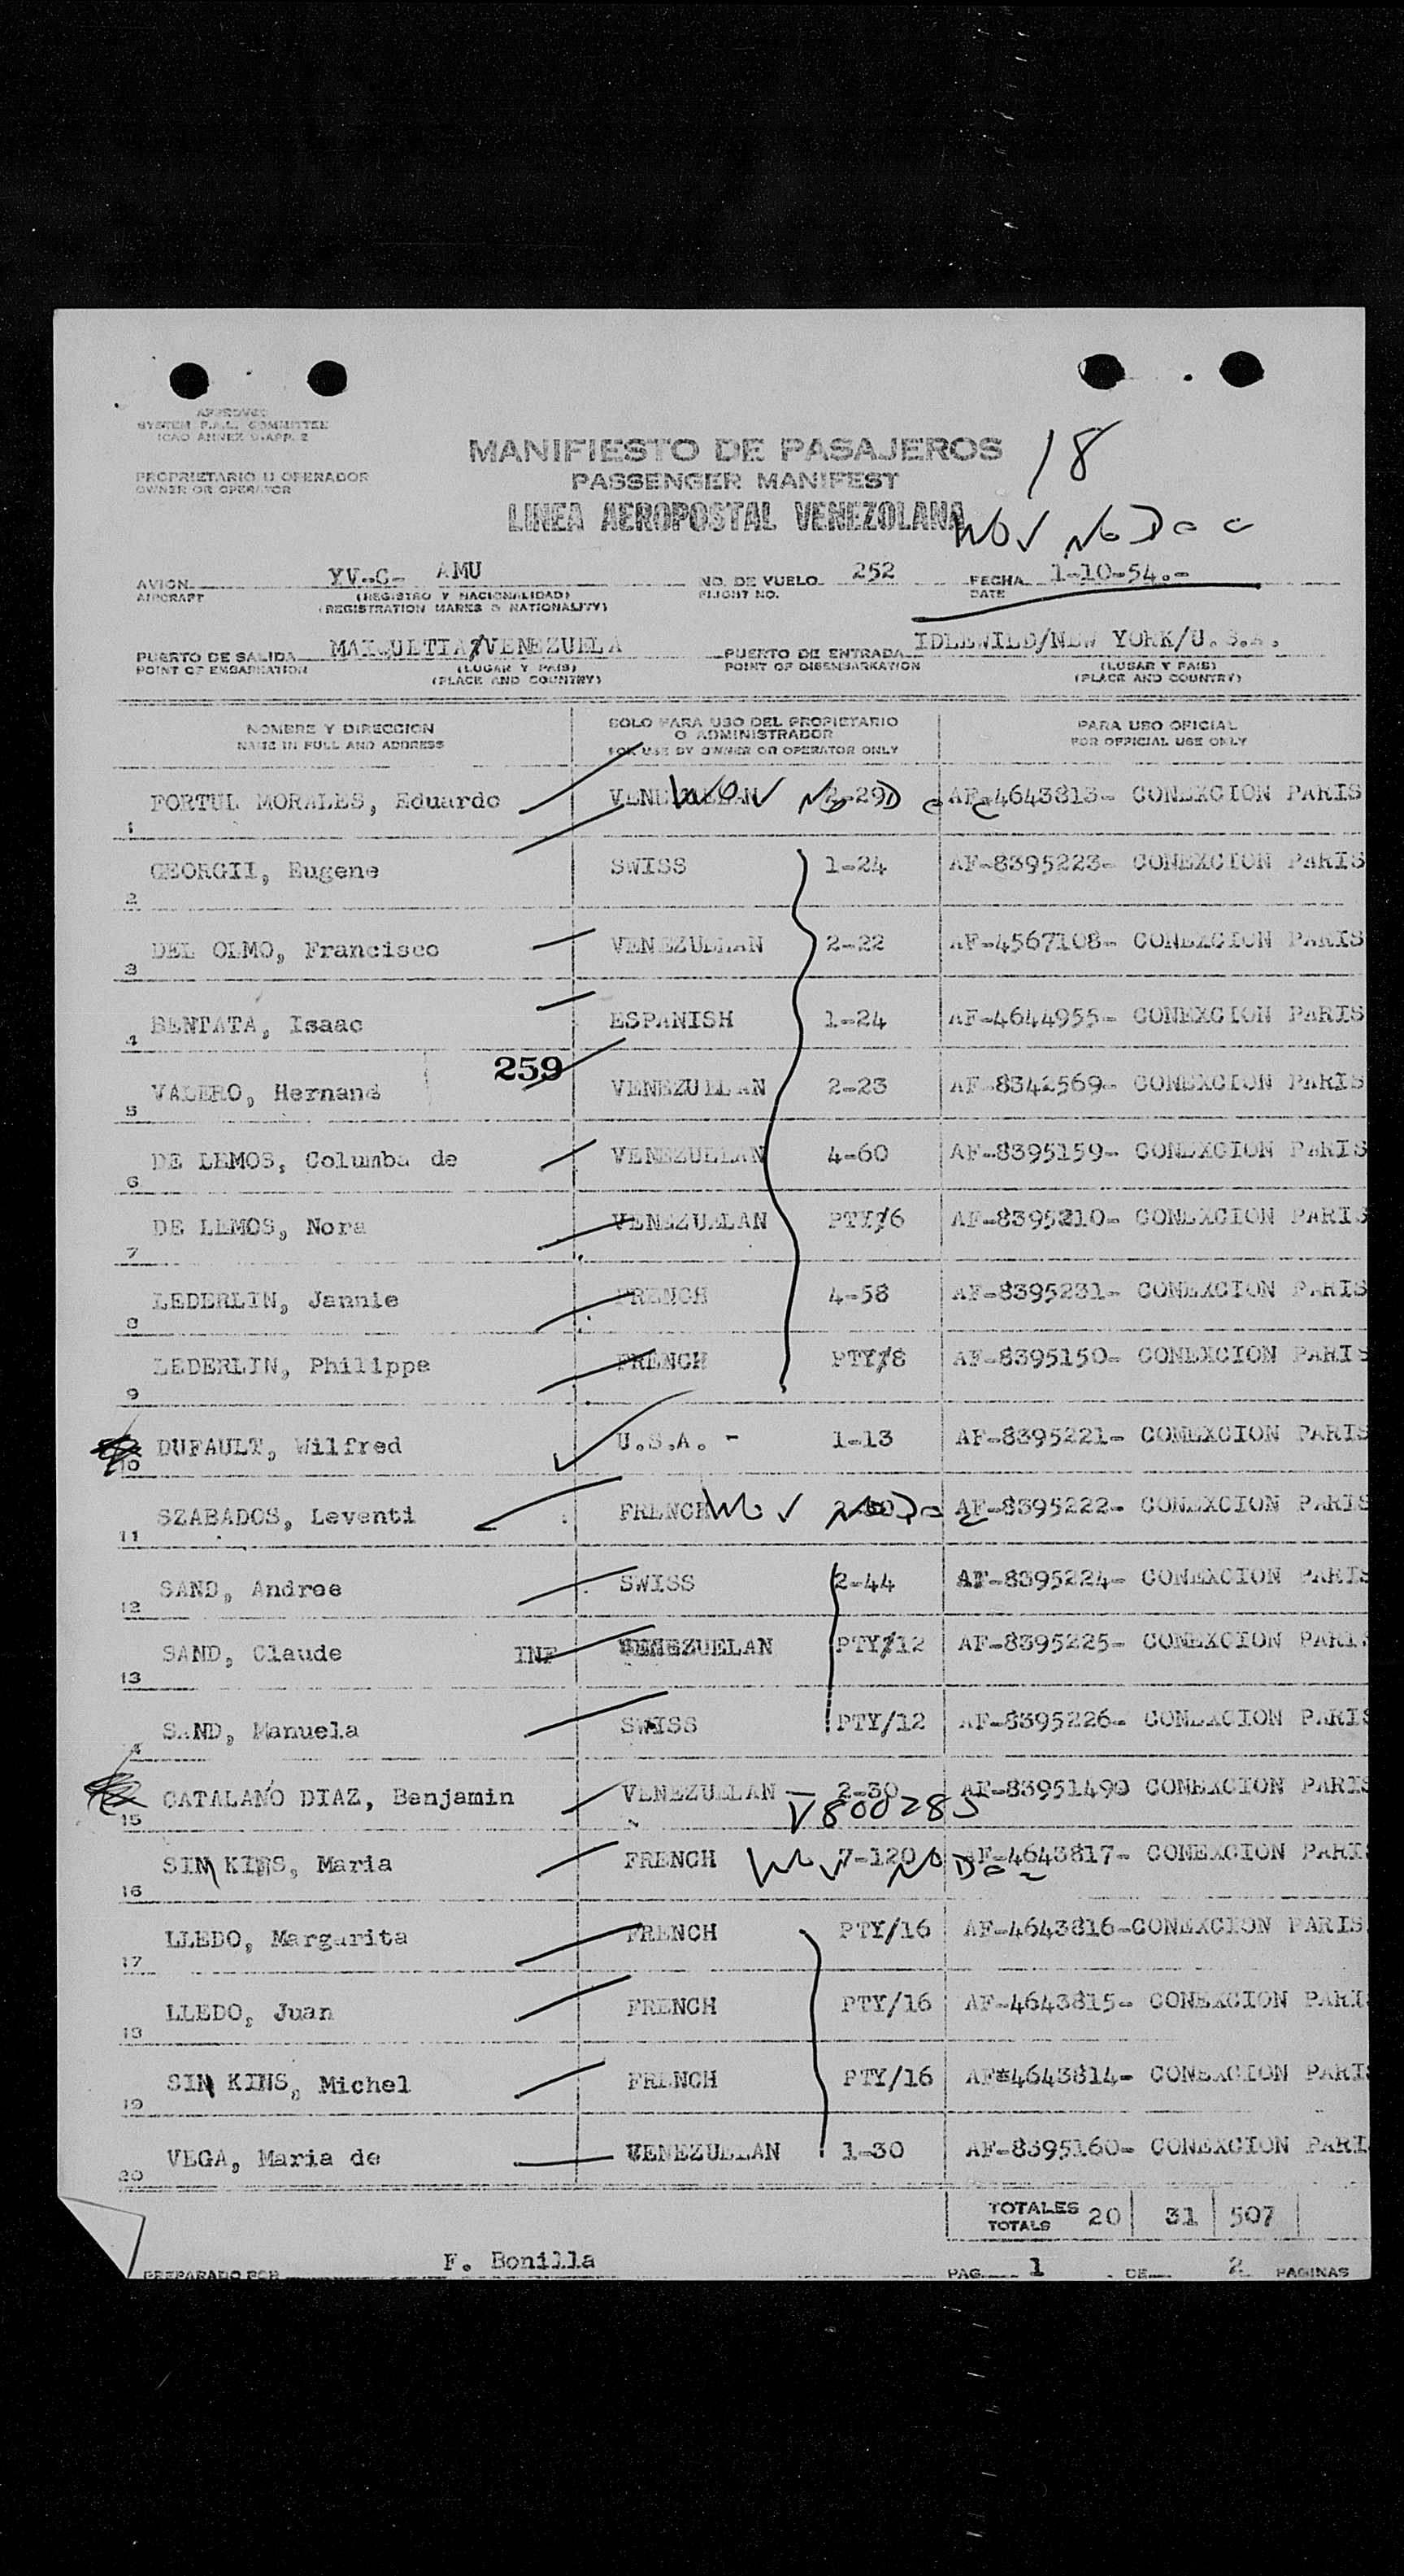 APPROVED
SYSTEM F.A.L. COMMITTEE
ICAO ANNEX 9-APP. 2
MANIFIESTO DE PASAJEROS
18
PROPRIETARIO U OPERADOR
OWNER OR OPERATOR
PASSENGER MANIFEST
LINEA AEROPOSTAL VENEZOLANA
AVION YV-C- AMU NO. DE VUELO 252 FECHA 1-10-54.-
AIRCRAFT (REGISTRO Y NACIONALIDAD) FLIGHT NO. DATE
(REGISTRATION MARKS & NATIONALITY)
PUERTO DE SALIDA MAIQUETIA/VENEZUELA PUERTO DE ENTRADA IDLEWILD/NEW YORK/U.S.A.
POINT OF EMBARKATION (LUGAR Y PAIS) POINT OF DISEMBARKATION (LUGAR Y PAIS)
(PLACE AND COUNTRY) (PLACE AND COUNTRY)
NOMBRE Y DIRECCION SOLO PARA USO DEL PROPIETARIO PARA USO OFICIAL
O ADMINISTRADOR
NAME IN FULL AND ADDRESS FOR USE BY OWNER OR OPERATOR ONLY FOR OFFICIAL USE ONLY
1 FORTUL MORALES, Eduardo VENEZUELAN 2-29 AF-4643813- CONEXCION PARIS
2 GEORGII, Eugene SWISS 1-24 AF-8395223- CONEXCION PARIS
3 DEL OLMO, Francisco VENEZUELAN 2-22 AF-4567108- CONEXCION PARIS
4 BENTATA, Isaac ESPANISH 1-24 AF-4644955- CONEXCION PARIS
259
5 VALERO, Hernand VENEZUELAN 2-23 AF-8342569- CONEXCION PARIS
6 DE LEMOS, Columba de VENEZUELAN 4-60 AF-8395159- CONEXCION PARIS
7 DE LEMOS, Nora VENEZUELAN PTY/6 AF-8395210- CONEXCION PARIS
8 LEDERLIN, Jannie FRENCH 4-58 AF-8395231- CONEXCION PARIS
9 LEDERLIN, Philippe FRENCH PTY/8 AF-8395150- CONEXCION PARIS
10 DUFAULT, Wilfred U.S.A. - 1-13 AF-8395221- CONEXCION PARIS
11 SZABADOS, Leventi FRENCH AF-8395222- CONEXCION PARIS
12 SAND, Andree SWISS 2-44 AF-8395224- CONEXCION PARIS
13 SAND, Claude INF VENEZUELAN PTY/12 AF-8395225- CONEXCION PARIS
SAND, Manuela SWISS PTY/12 AF-8395226- CONEXCION PARIS
15 CATALANO DIAZ, Benjamin VENEZUELAN - 2-30 AF-83951490 CONEXCION PARIS
V800285
16 SIM KINS, Maria FRENCH 7-120 AF-4643817- CONEXCION PARI
17 LLEDO, Margarita FRENCH PTY/16 AF-4643816-CONEXCION PARIS
18 LLEDO, Juan FRENCH PTY/16 AF-4643815- CONEXCION PARI
19 SIM KINS, Michel FRENCH PTY/16 AF-4643814- CONEXCION PARI
20 VEGA, Maria de VENEZUELAN 1-30 AF-8395160- CONEXCION PARI
TOTALES 20 31 507
TOTALS
PREPARADO POR F. Bonilla PAG. 1 DE 2 PAGINAS